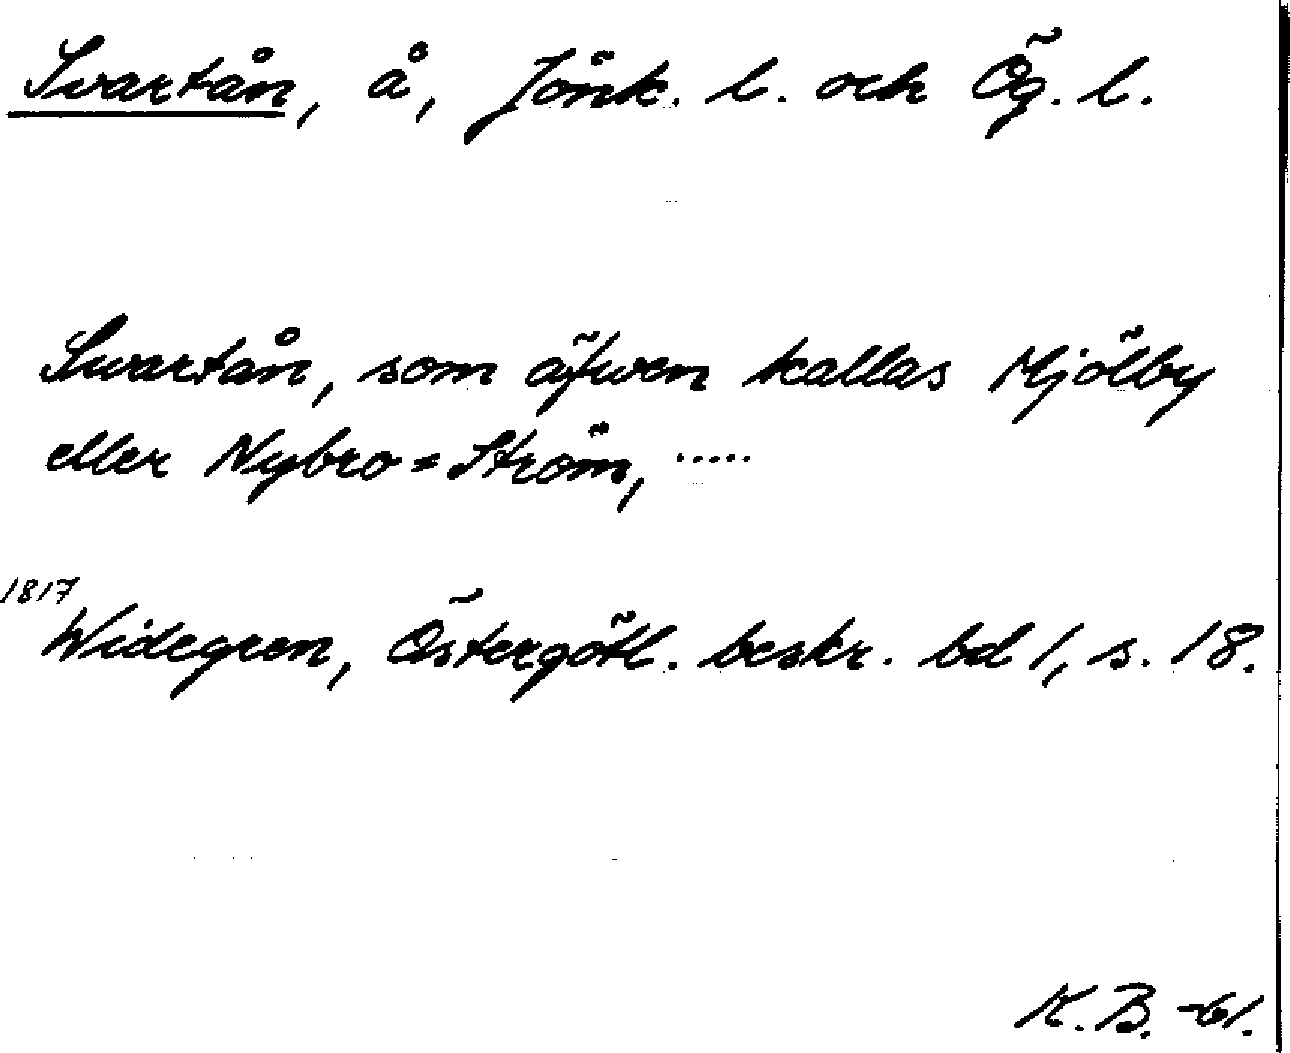 Svartån, å, Jönk. l. och Ög. l.
Swartån, som äfwen kallas Mjölby
eller Nybro=Ström, .....
1817
Widegren, Östergötl. beskr. bd 1, s. 18.
K.B. -61.